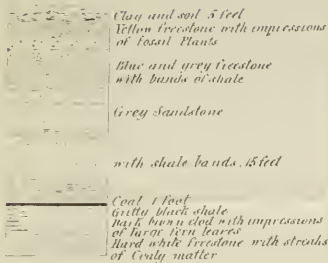 Clay and soil 5 feet
Yellow freestone with impressions
of fossil Plants
Blue and grey freestone
with bands of shale
Grey Sandstone
with shale bands. 15 feet
Coal 1 foot
Gritty black shale
Dark brown clod with impressions
of large fern leaves
Hard white freestone with streaks
of Coaly matter